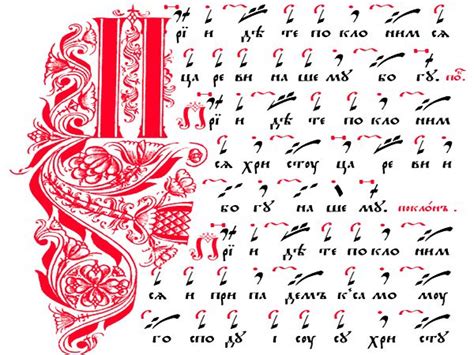 Прї и дѣ те по кло ним ся
ца ре ви на ше му бо гу. по҃.
Прї и дѣ те по кло ним
ся хри сту ца ре ви и
бо гу на ше му. поклонъ.
Прї и дѣ те по кло ним
ся и при па демъ к̾са мо му
го спо ду і су су хри сту